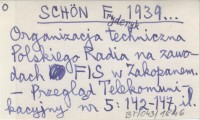 SCHÖN Fryderyk 1939...
Organizacja techniczna
Polskiego Radia na zawo-
dach FIS w Zakopanem.
— Przegląd Telekomuni-
kacyjny nr 5: 142-147, il.